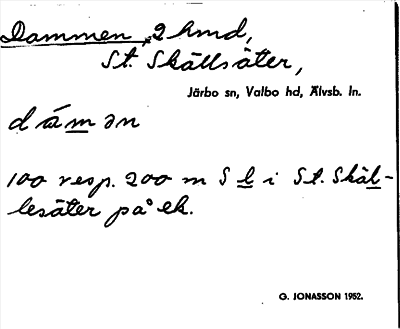 Dammen, 2 hmd,
St. Skällsäter,
Järbo sn, Valbo hd, Älvsb. ln.
dámən
100 resp. 200 m S l i St. Skäl-
lesäter på ek.
G. JONASSON 1952.